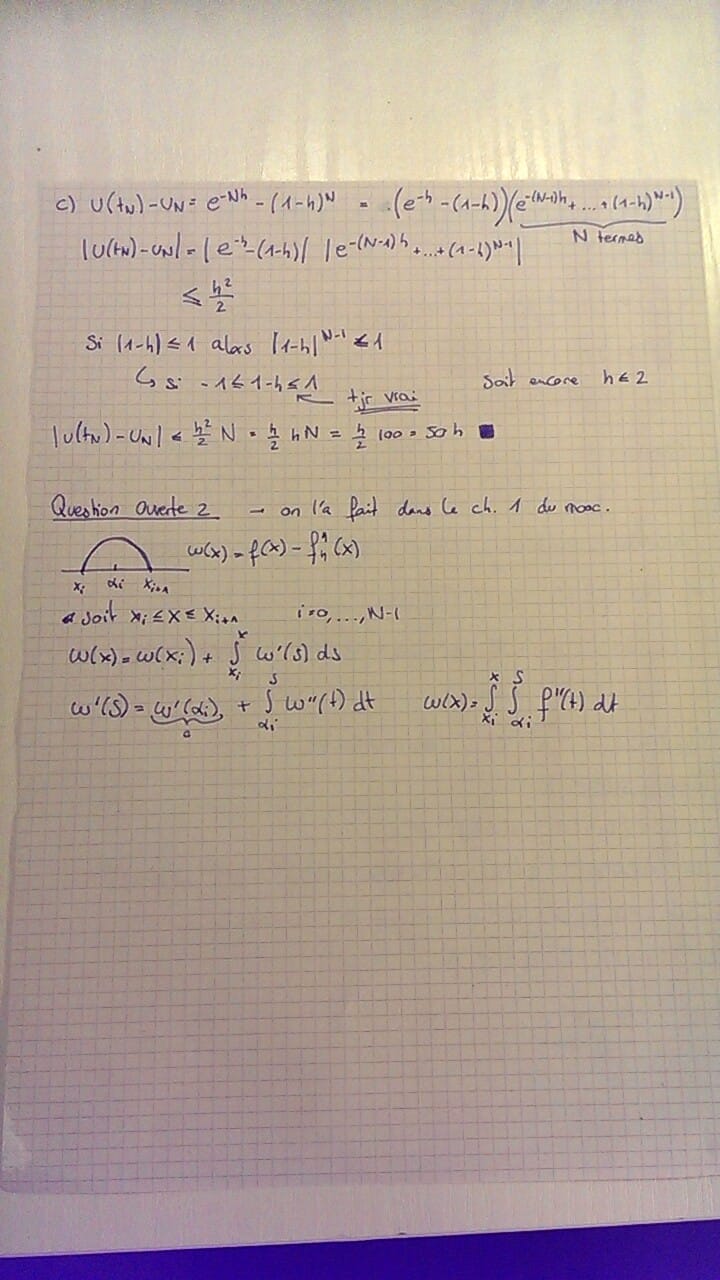 c) u(t_N) - u_N = e^{-Nh} - (1-h)^N = (e^{-h} - (1-h))(e^{-(N-1)h} + ... + (1-h)^{N-1})
N termes
|u(t_N) - u_N| = |e^{-h} - (1-h)| |e^{-(N-1)h} + ... + (1-h)^{N-1}|
≤ h²/2
Si |1-h| ≤ 1 alors |1-h|^{N-1} ≤ 1
↳ si -1 ≤ 1-h ≤ 1 soit encore h ≤ 2
tjr vrai
|u(t_N) - u_N| ≤ h²/2 N = h/2 hN = h/2 100 = 50h ■
Question Ouverte 2 → on l'a fait dans le ch. 1 du mooc.
w(x) = f(x) - f_h^1(x)
x_i α_i x_{i+1}
soit x_i ≤ x ≤ x_{i+1} i=0,...,N-1
w(x) = w(x_i) + ∫_{x_i}^{x} w'(s) ds
w'(s) = w'(α_i) + ∫_{α_i}^{s} w''(t) dt w(x) = ∫_{x_i}^{x} ∫_{α_i}^{s} f''(t) dt
0